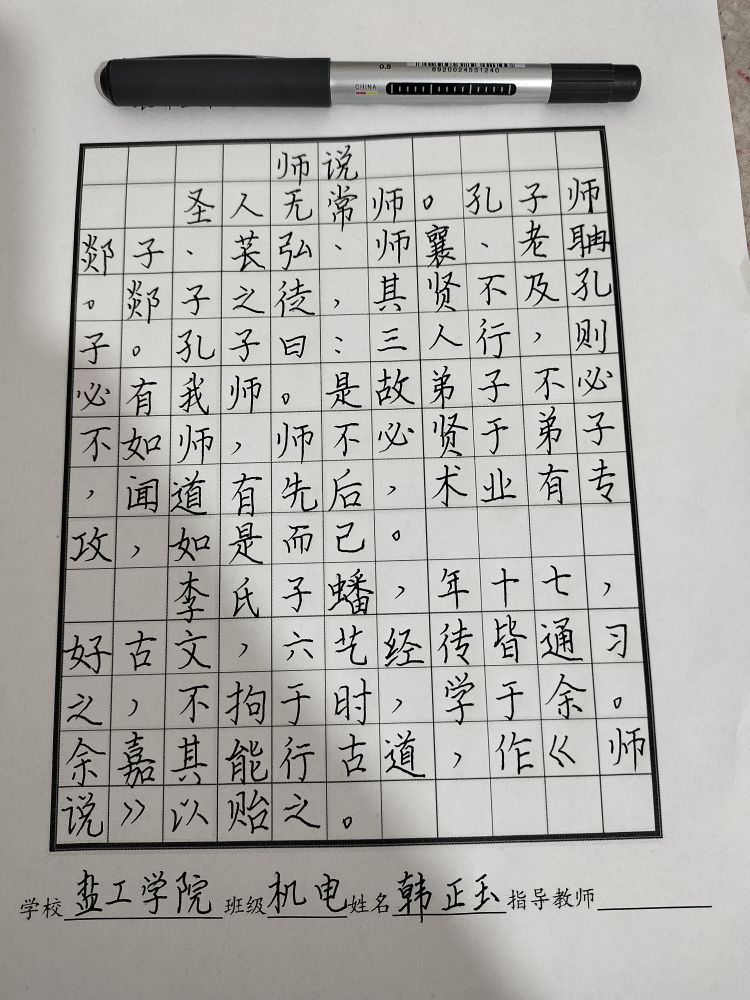 0.5
6920024531240
CHINA
师说
圣人无常师。孔子师
郯子、苌弘、师襄、老聃
。郯子之徒，其贤不及孔
子。孔子曰：三人行，则
必有我师。是故弟子不必
不如师，师不必贤于弟子
，闻道有先后，术业有专
攻，如是而已。
李氏子蟠，年十七，
好古文，六艺经传皆通习
之，不拘于时，学于余。
余嘉其能行古道，作《师
说》以贻之。
学校盐工学院班级机电姓名韩正玉指导教师